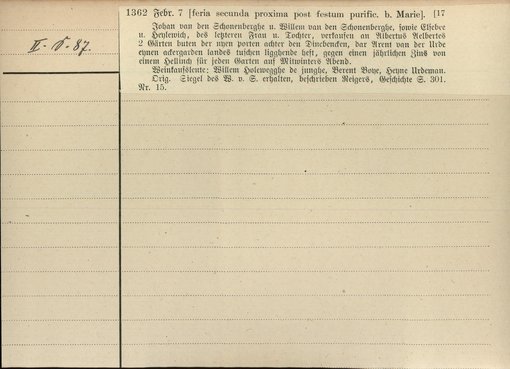 1362 Febr. 7 [feria secunda proxima post festum purific. b. Marie]. [17
Johan van den Schonenberghe u. Willem van den Schonenberghe, sowie Elsebee
u. Heylewich, des letzteren Frau u. Tochter, verkaufen an Albertus Aelbertes
2 Gärten buten der nyen porten achter den Dincbencken, dar Arent van der Urde
eynen ackergarden landes tuschen ligghende heft, gegen einen jährlichen Zins von
einem Hellinch für jeden Garten auf Mitwinters Abend.
Weinkaufsleute: Willem Holewegghe de junghe, Berent Boye, Heyne Urdeman.
Orig. Siegel des W. v. S. erhalten, beschrieben Reigers, Geschichte S. 301.
Nr. 15.
II. 87.